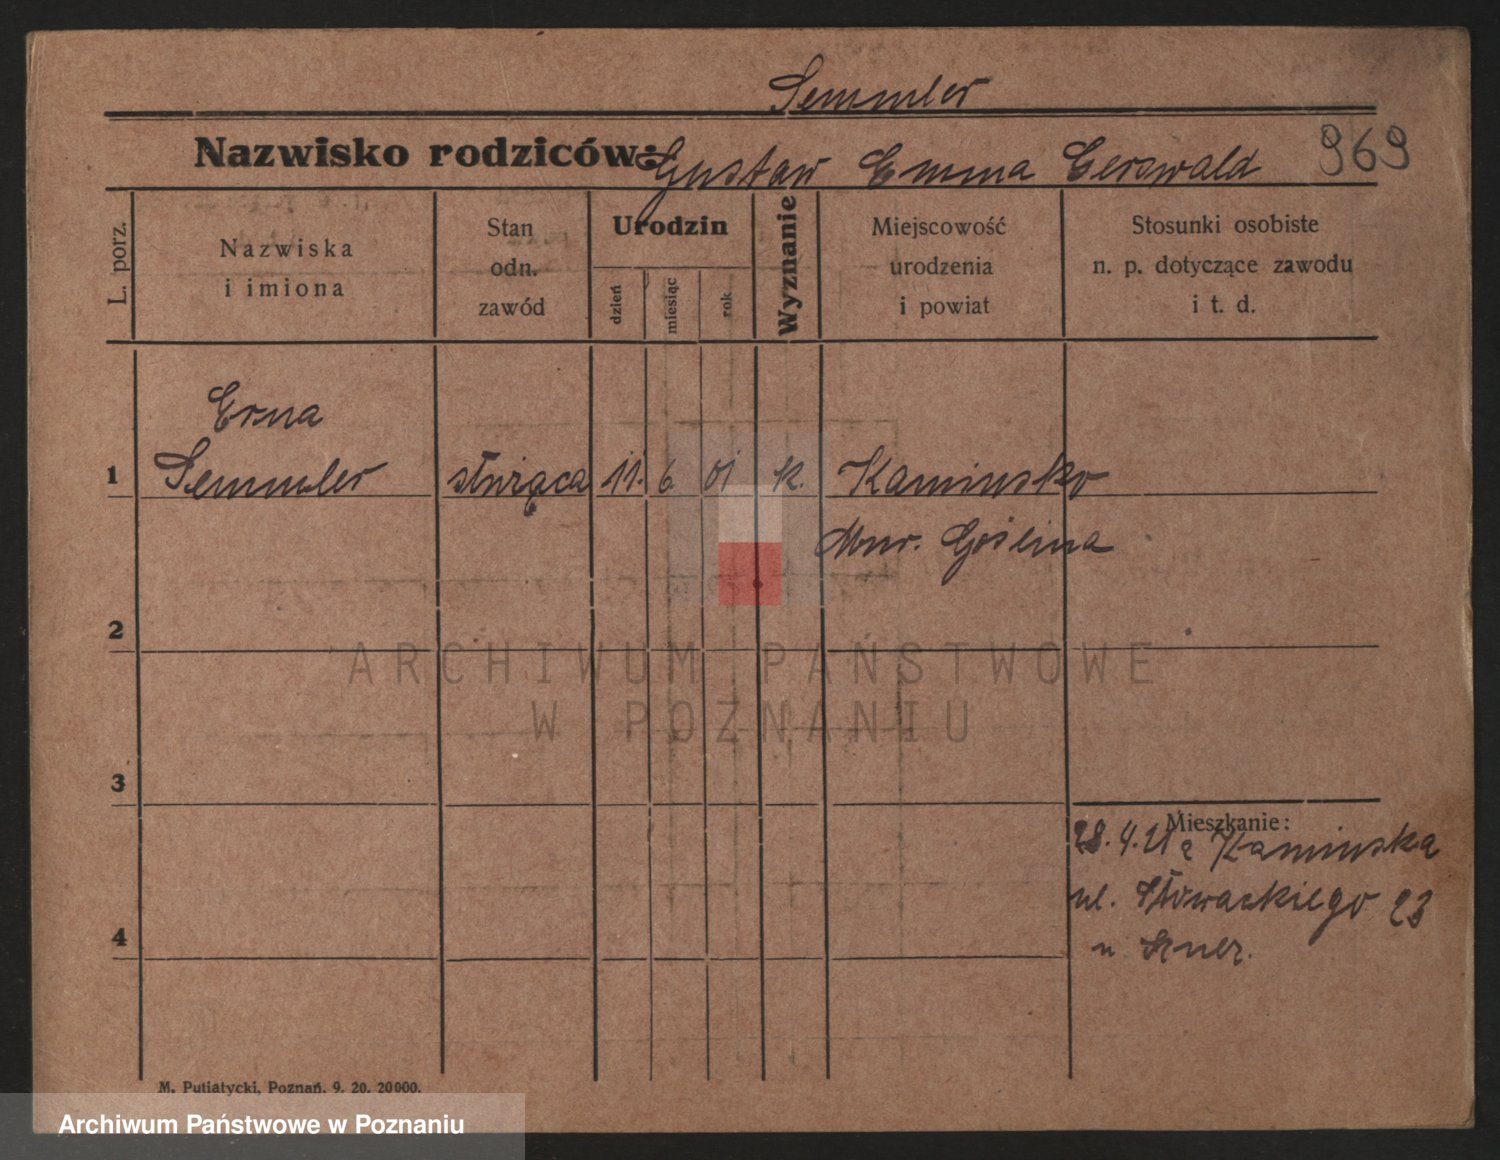 Semmler
Nazwisko rodziców: Gustaw Emma Gerswald 969
L. porz.
Nazwiska
i imiona
Stan
odn.
zawód
Urodzin
dzień
miesiąc
rok
Wyznanie
Miejscowość
urodzenia
i powiat
Stosunki osobiste
n. p. dotyczące zawodu
i t. d.
Erna
1 Semmler służąca 11. 6. 01 k. Kaminsko
Mur. Goślina
2
ARCHIWUM PAŃSTWOWE
W POZNANIU
3
Mieszkanie:
28. 4. 21 z Kaminska
ul. Słowackiego 23
4
u
M. Putiatycki, Poznań. 9. 20. 20000.
Archiwum Państwowe w Poznaniu